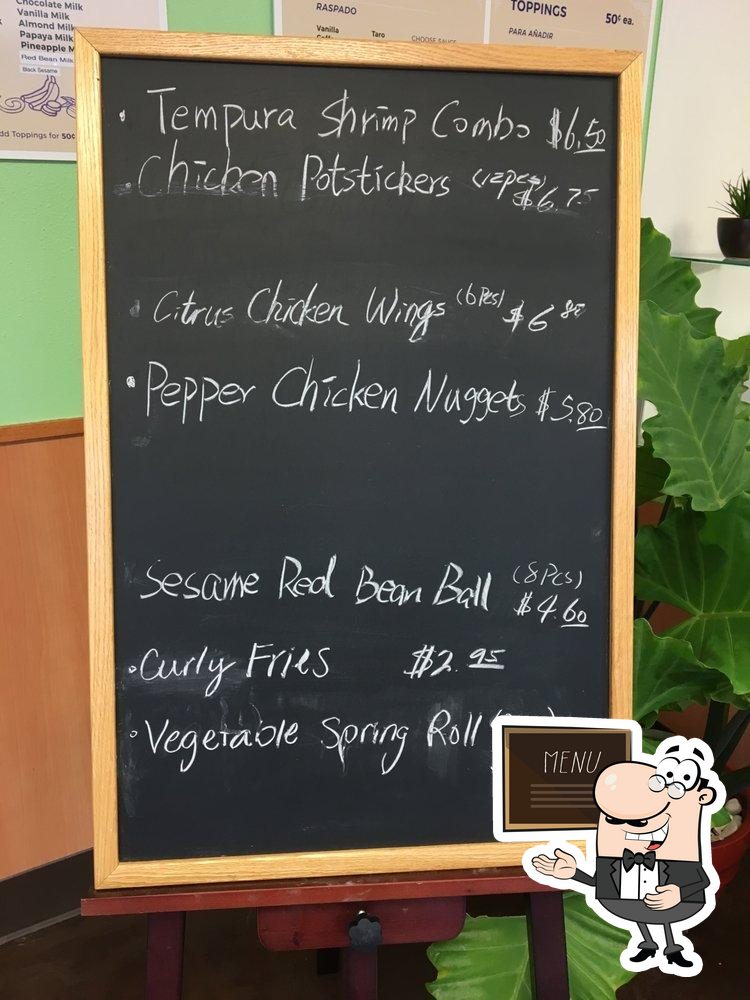 Chocolate Milk
Vanilla Milk
Almond Milk
Papaya Milk
Pineapple M
Red Bean Milk
Black Sesame
dd Toppings for 50¢
RASPADO
Vanilla
Taro
CHOOSE SAUCE
TOPPINGS 50¢ ea.
PARA AÑADIR
• Tempura Shrimp Combo $6.50
• Chicken Potstickers (12pcs) $6.75
• Citrus Chicken Wings (6Pcs) $6.80
• Pepper Chicken Nuggets $5.80
Sesame Red Bean Ball (8Pcs) $4.60
• Curly Fries $2.95
• Vegetable Spring Roll
MENU